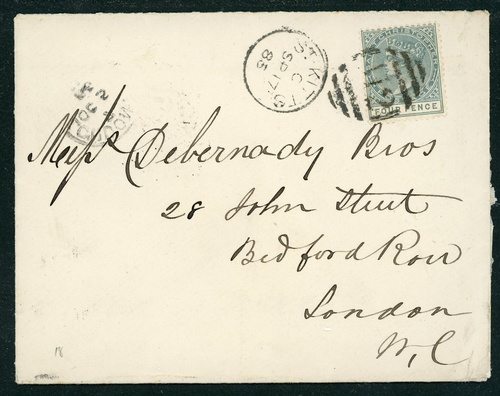 ST. KITTS
C
SP 17
85
FOUR PENCE
Messrs Debernady Bros
28 John Street
Bedford Row
London
W,C